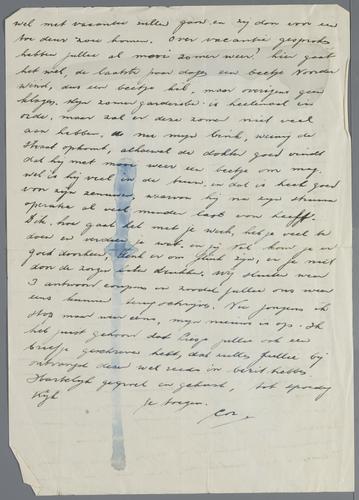 wel met vacantie zullen gaan en zij dan voor een
toe deur zoie komen. Over vacantie gesproken
hebben jullie al mooi zomer weer? hier gaat
het wel, de laatste paar dagen een beetje Noorden
wind, dus een beetje kil, maar overigens geen
klagen. Mijn zomer garderobe is heelemaal in
orde, maar zal er deze zomer niet veel
aan hebben, daar mijn Henk, weinig de
straat ophoudt, alhoewel de dokter goed vindt
dat hij met mooi weer een beetje om mag.
wel is hij veel in de tuin, en dat is heel goed
voor zijn zenuwen, waarvan hij na zijn struma
operatie al veel minder last van heeft.
Dik, hoe gaat het met je werk, heb je veel te
doen en verdien je wat en jij Nel kom je er
goed doorheen Denk er om flink zijn, en je niet
door de zorgen laten drukken. Wij sluiten weer
3 antwoord coupons in zoodat jullie ons weer
eens kunnen terug schrijven. Nu jongens ik
stop maar weer eens, mijn nieuws is op. Ik
heb juist gehoord dat jullie ook een
briefje geschreven hebt, dat zullen jullie bij
ontvangst dezer wel reeds in bezit hebben
Hartelijk gegroet en gekust, tot spoedig
Kijk
Je toegen.
Cor.